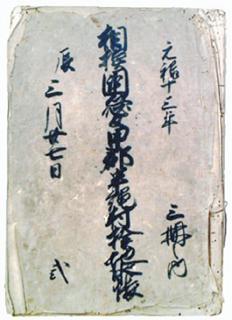 元禄十三年
三冊之内
相模国愛甲郡半縄村検地帳
辰三月廿七日
弐